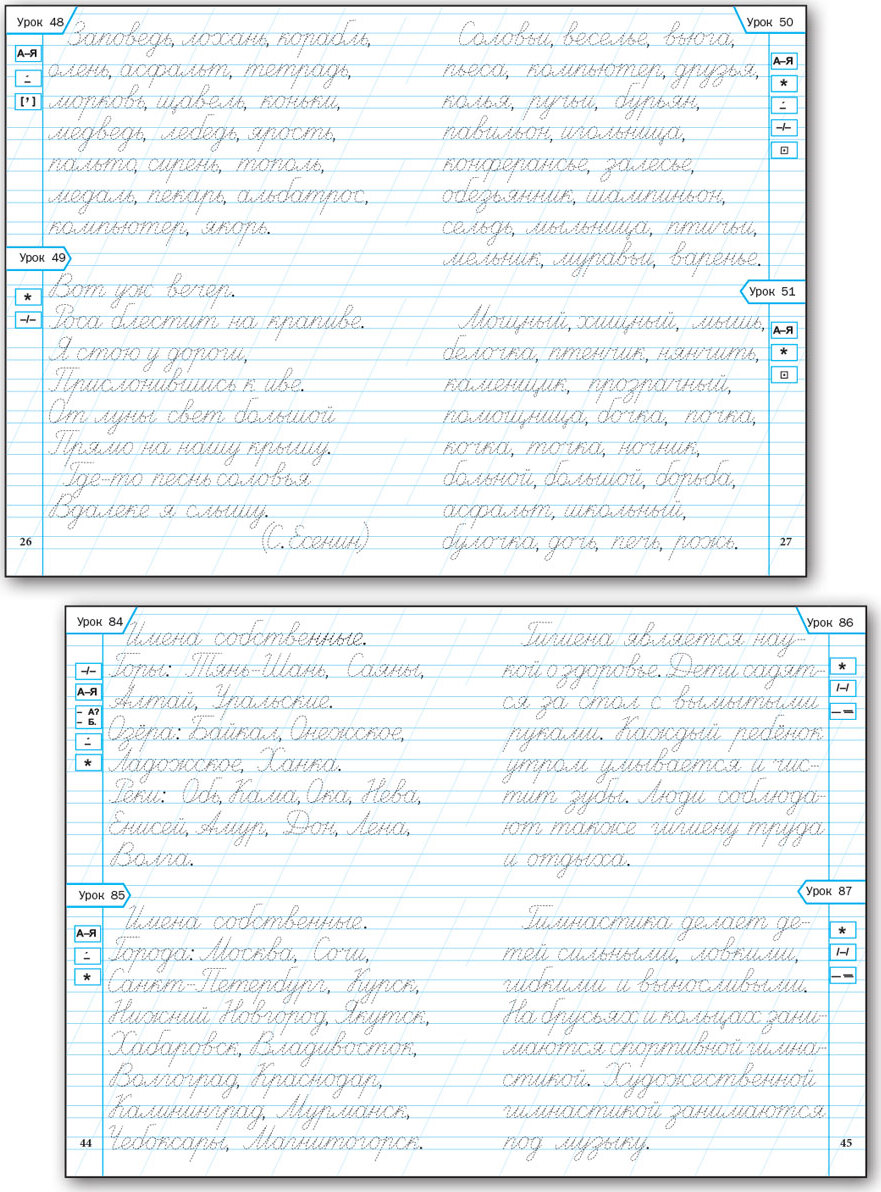 Урок 48
А–Я
[’]
Заповедь, лохань, корабль,
олень, асфальт, тетрадь,
морковь, щавель, коньки,
медведь, лебедь, ярость,
пальто, сирень, тополь,
медаль, пекарь, альбатрос,
компьютер, якорь.
Урок 49
*
–/–
Вот уж вечер.
Роса блестит на крапиве.
Я стою у дороги,
Прислонившись к иве.
От луны свет большой
Прямо на нашу крышу.
Где-то песнь соловья
Вдалеке я слышу.
(С. Есенин)
26
Урок 50
А–Я
*
–/–
Соловьи, веселье, вьюга,
пьеса, компьютер, друзья,
колья, ручьи, бурьян,
павильон, игольница,
конферансье, залесье,
обезьянник, шампиньон,
сельдь, мыльница, птичьи,
мельник, муравьи, варенье.
Урок 51
А–Я
*
Мощный, хищный, мышь,
белочка, птенчик, нянчить,
каменщик, прозрачный,
помощница, бочка, почка,
кочка, точка, ночник,
больной, большой, борьба,
асфальт, школьный,
булочка, дочь, печь, рожь.
27
Урок 84
–/–
А–Я
– А?
– Б.
*
Имена собственные.
Горы: Тянь-Шань, Саяны,
Алтай, Уральские.
Озёра: Байкал, Онежское,
Ладожское, Ханка.
Реки: Обь, Кама, Ока, Нева,
Енисей, Амур, Дон, Лена,
Волга.
Урок 85
А–Я
*
Имена собственные.
Города: Москва, Сочи,
Санкт-Петербург, Курск,
Нижний Новгород, Якутск,
Хабаровск, Владивосток,
Волгоград, Краснодар,
Калининград, Мурманск,
Чебоксары, Магнитогорск.
44
Урок 86
*
/–/
Гигиена является нау-
кой о здоровье. Дети садят-
ся за стол с вымытыми
руками. Каждый ребёнок
утром умывается и чис-
тит зубы. Люди соблюда-
ют также гигиену труда
и отдыха.
Урок 87
*
/–/
Гимнастика делает де-
тей сильными, ловкими,
гибкими и выносливыми.
На брусьях и кольцах зани-
маются спортивной гимна-
стикой. Художественной
гимнастикой занимаются
под музыку.
45